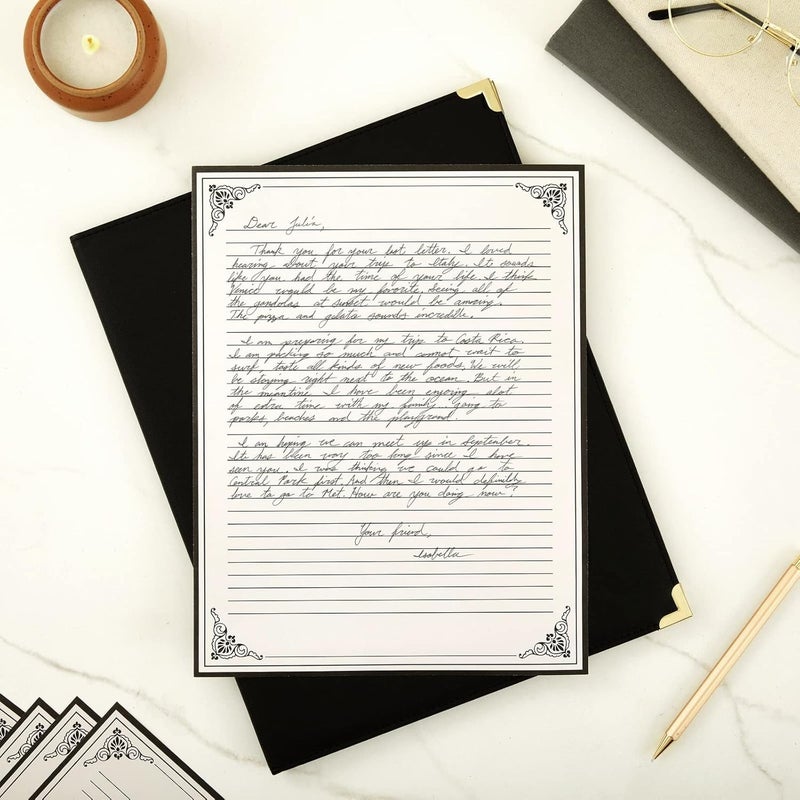 Dear Julia,
Thank you for your last letter. I loved
hearing about your trip to Italy. It sounds
like you had the time of your life. I think
Venice would be my favorite. Seeing all of
the gondolas at sunset would be amazing.
The pizza and gelato sounds incredible.
I am preparing for my trip to Costa Rica.
I am packing so much and cannot wait to
surf, taste all kinds of new foods. We will
be staying right next to the ocean. But in
the meantime I have been enjoying alot
of extra time with my family... going to
parks, beaches and the playground.
I am hoping we can meet up in September.
It has been way too long since I have
seen you. I was thinking we could go to
Central Park first. And then I would definitely
love to go to Met. How are you doing now?
Your friend,
Isabella